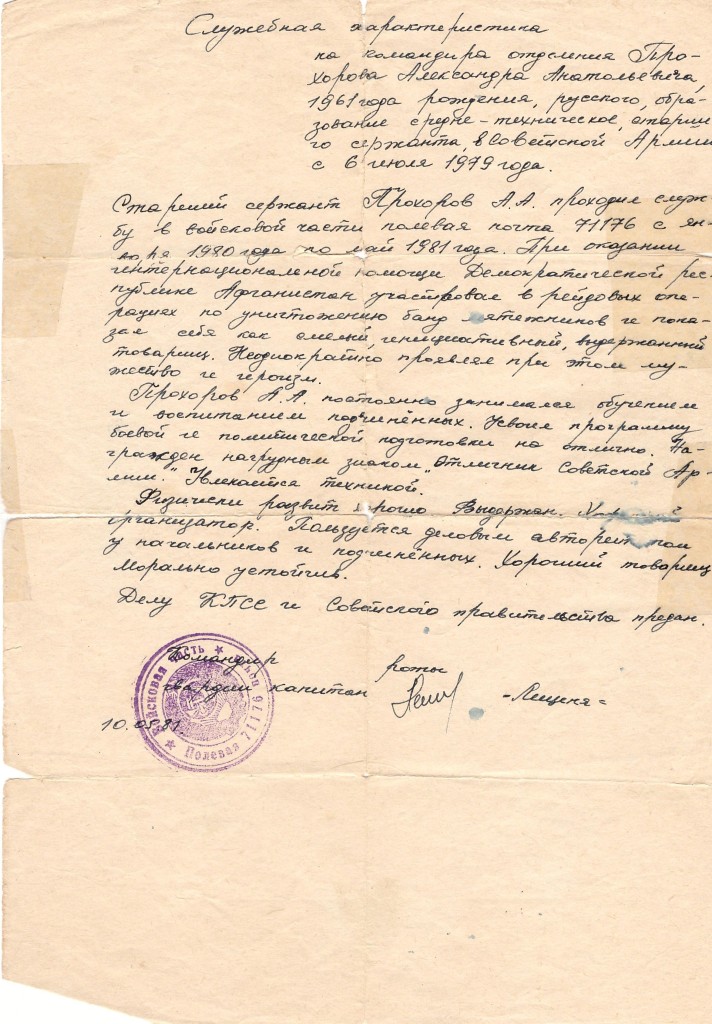 Служебная характеристика
на командира отделения Про-
хорова Александра Анатольевича,
1961 года рождения, русского, обра-
зование средне-техническое, старше-
го сержанта, в Советской Армии
с 6 июля 1979 года.
Старший сержант Прохоров А.А. проходил служ-
бу в войсковой части полевая почта 71176 с ян-
варя 1980 года по май 1981 года. При оказании
интернациональной помощи Демократической рес-
публике Афганистан участвовал в рейдовых опе-
рациях по уничтожению банд мятежников и пока-
зал себя как смелый, инициативный, выдержанный
товарищ. Неоднократно проявлял при этом му-
жество и героизм.
Прохоров А.А. постоянно занимался обучением
и воспитанием подчинённых. Усвоил программу
боевой и политической подготовки на отлично. На-
гражден нагрудным знаком „Отличник Советской Ар-
мии." Увлекается техникой.
Физически развит хорошо. Выдержан.
организатор. Пользуется деловым авторитетом
у начальников и подчинённых. Хороший товарищ.
Морально устойчив.
Делу КПСС и Советского правительства предан.
Командир роты
гвардии капитан
10.05.81.
Войсковая часть
Полевая 71176